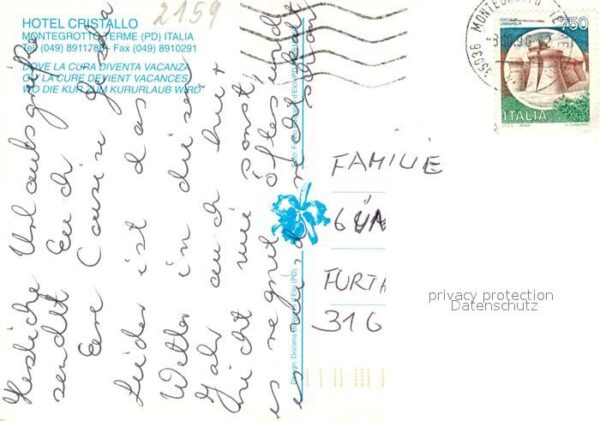 HOTEL CRISTALLO
MONTEGROTTO TERME (PD) ITALIA
Tel. (049) 8911788 - Fax (049) 8910291
DOVE LA CURA DIVENTA VACANZA
OU LA CURE DEVIENT VACANCES
WO DIE KUR ZUM KURURLAUB WIRD
2159
Herzliche Urlaubsgrüße
sendet Euch
Eure Cousine
Leider ist das
Wetter in diesem
Jahr auch hier
nicht wie sonst,
es regnet öfters und
ist
FAMILIE
GÜN
FURTH
316
35036 MONTEGROTTO
750
ITALIA
privacy protection
Datenschutz